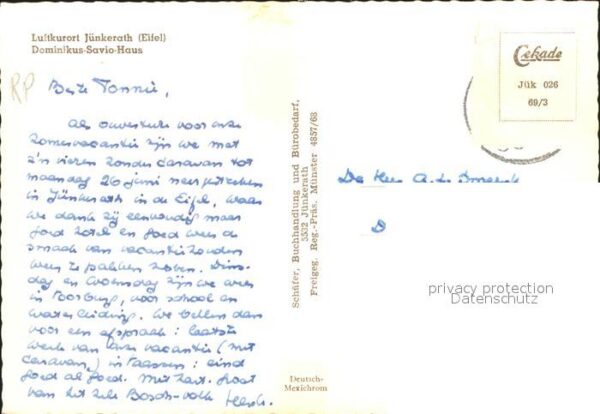 Luftkurort Jünkerath (Eifel)
Dominikus-Savio-Haus
RP
Beste Tonnie,
Als ouverture voor onze
zomervacantie zijn we met
z'n vieren zonder caravan tot
maandag 26 juni neergestreken
in Jünkerath in de Eifel, waar
we dank zij eenvoudig maar
goed hotel en goed weer de
smaak van vacantiehouden
weer te pakken hebben. Dins-
dag en woensdag zijn we weer
in Voorburg, voor school en
waterleiding. We bellen dan
voor een afspraak: laatste
week van onze vacantie (met
caravan) in Vaassen: eind
goed al goed. Met hart. groet
van het hele Bosch-volk
Schäfer, Buchhandlung und Bürobedarf,
5532 Jünkerath
Freigeg. Reg.-Präs. Münster 4857/63
Deutsch-
Mexichrom
Cekade
Jük 026
69/3
De Heer A.
D
privacy protection
Datenschutz